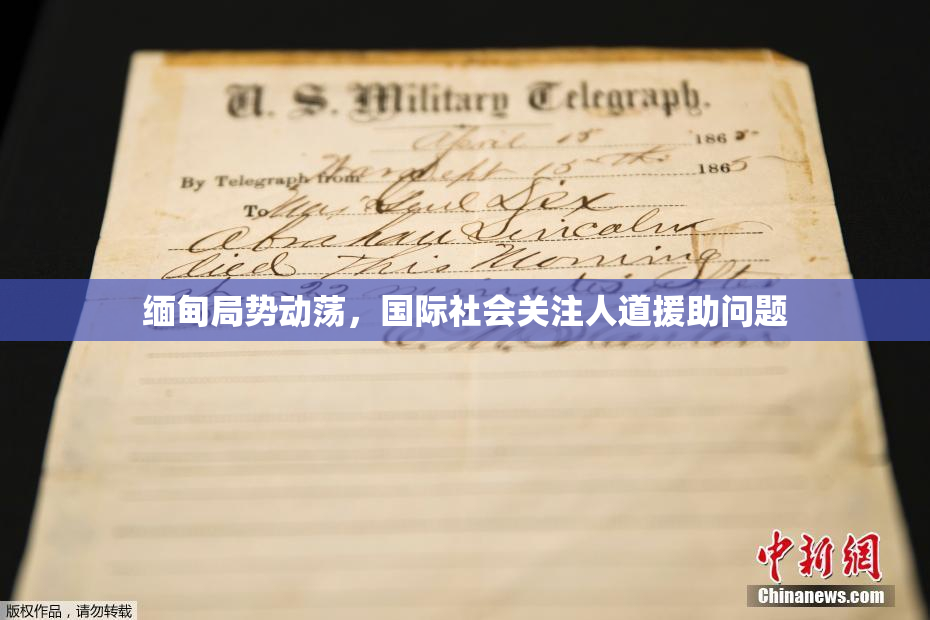 U. S. Military Telegraph.
April 15 1865
By Telegraph from War Dept 15th 1865
To Maj Genl Dix
Abraham Lincoln
died This Morning
at 22 minutes after
缅甸局势动荡，国际社会关注人道援助问题
E. M. Stanton
中新网
Chinanews.com
版权作品，请勿转载